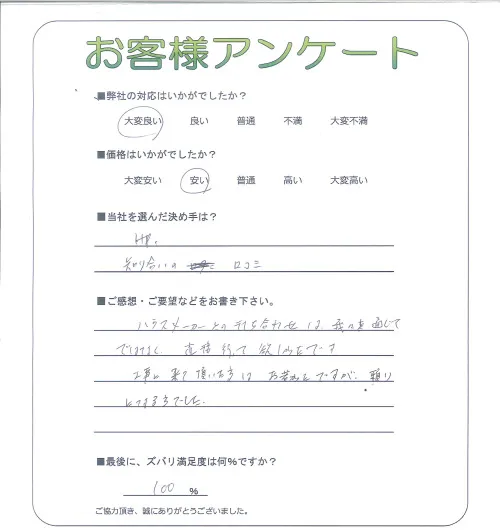 お客様アンケート
■弊社の対応はいかがでしたか？
大変良い 良い 普通 不満 大変不満
■価格はいかがでしたか？
大変安い 安い 普通 高い 大変高い
■当社を選んだ決め手は？
HP。
知り合いの 口コミ
■ご感想・ご要望などをお書き下さい。
ハウスメーカーとの打ち合わせは、 通して
ではなく、直接行って です
工事に来て頂いた方は お若い ですが、頼り
になる方でした。
■最後に、ズバリ満足度は何%ですか？
100 %
ご協力頂き、誠にありがとうございました。